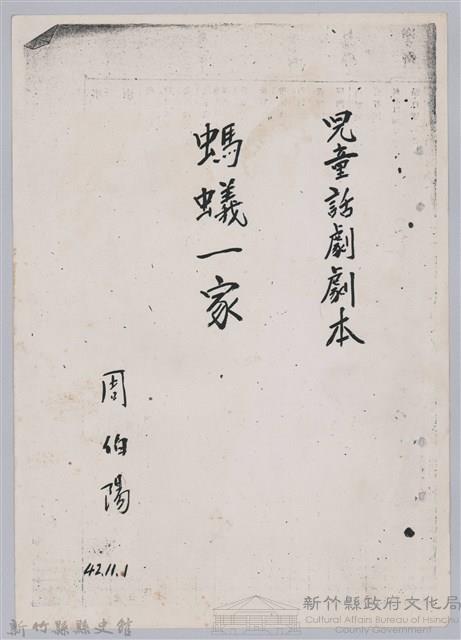 兒童話劇劇本
螞蟻一家
周伯陽
42.11.1
新竹縣縣史館
新竹縣政府文化局
Cultural Affairs Bureau of Hsinchu
County Government